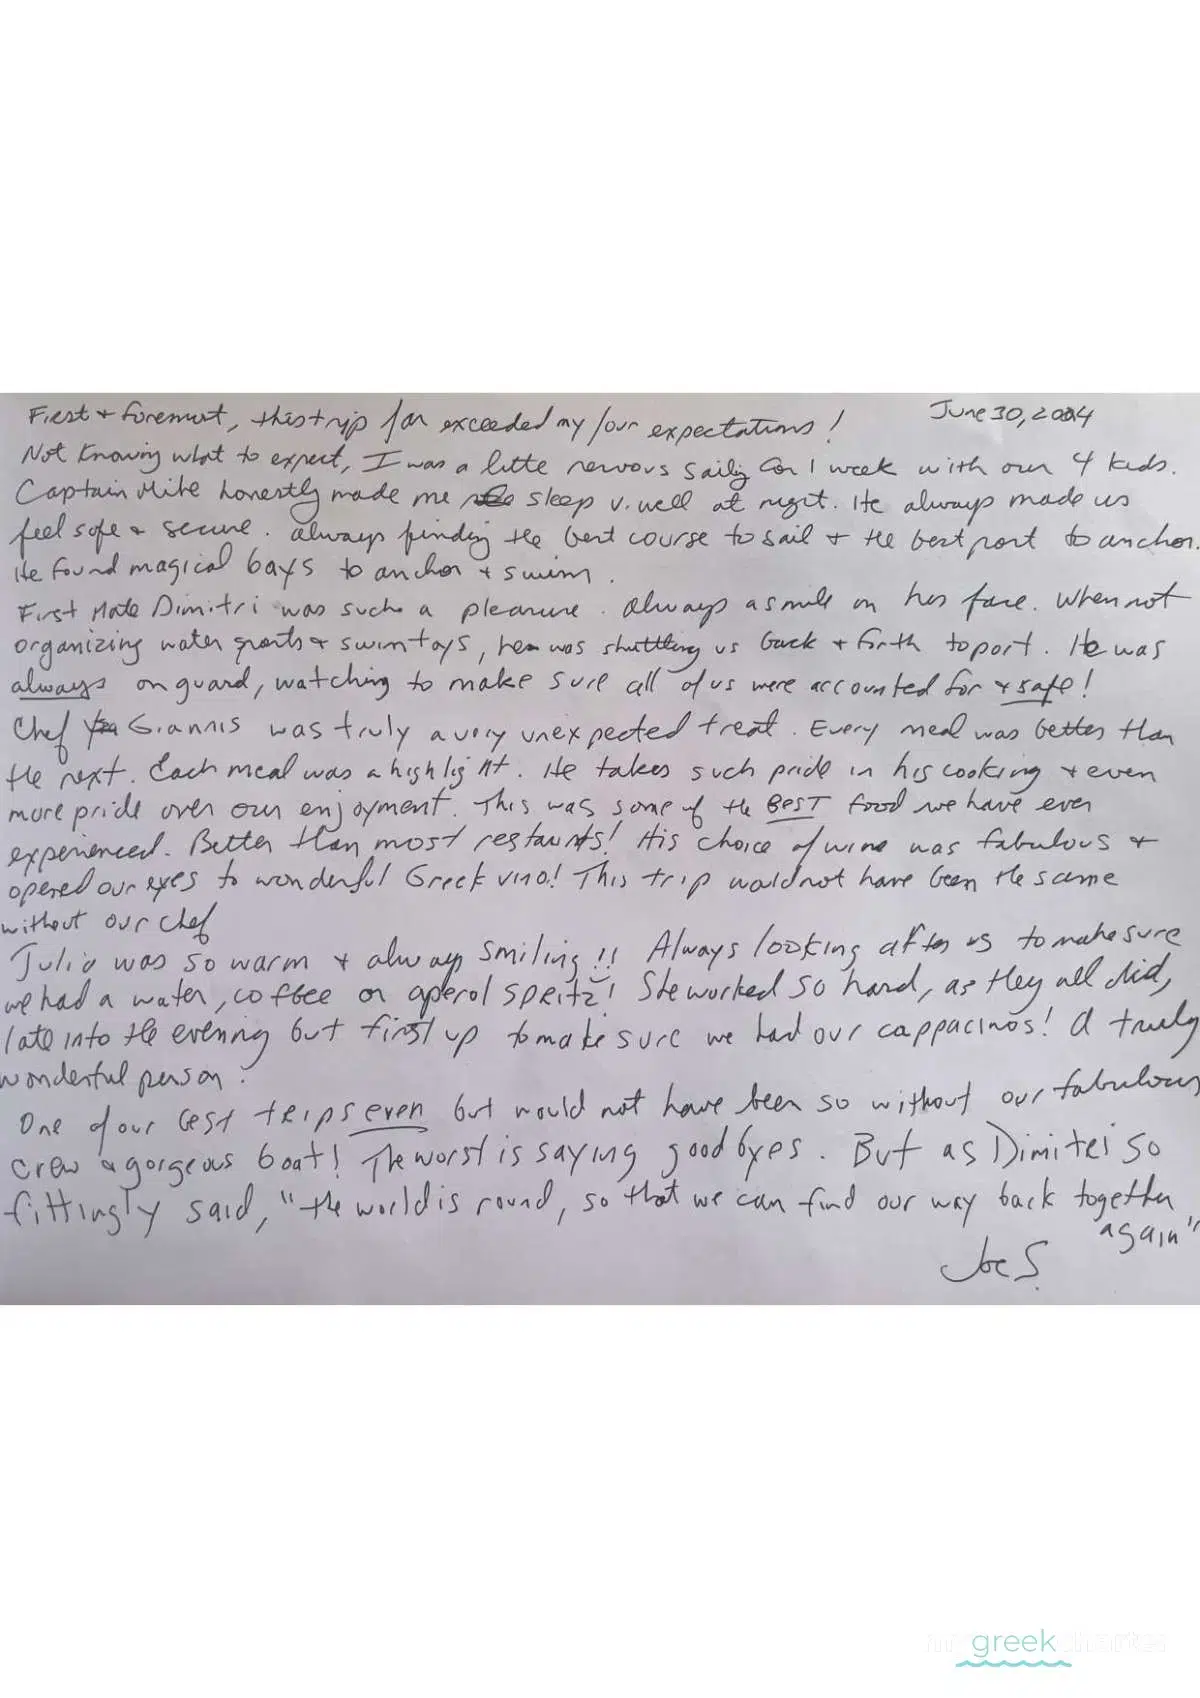 June 30, 2024
First + foremost, this trip far exceeded my/our expectations!
Not knowing what to expect, I was a little nervous sailing for 1 week with our 4 kids.
Captain Mike honestly made me sleep v. well at night. He always made us
feel safe + secure. Always finding the best course to sail + the best port to anchor.
He found magical bays to anchor + swim.
First Mate Dimitri was such a pleasure. Always a smile on his face. When not
organizing water sports + swim toys, he was shuttling us back + forth to port. He was
always on guard, watching to make sure all of us were accounted for + safe!
Chef Giannis was truly a very unexpected treat. Every meal was better than
the next. Each meal was a highlight. He takes such pride in his cooking + even
more pride over our enjoyment. This was some of the BEST food we have ever
experienced. Better than most restaurants! His choice of wine was fabulous +
opened our eyes to wonderful Greek vino! This trip would not have been the same
without our chef
Julia was so warm + always smiling!! Always looking after us to make sure
we had a water, coffee or aperol spritz! She worked so hard, as they all did,
late into the evening but first up to make sure we had our cappacinos! A truly
wonderful person.
One of our best trips ever but would not have been so without our fabulous
crew + gorgeous boat! The worst is saying goodbyes. But as Dimitri so
fittingly said, "the world is round, so that we can find our way back together
again"
Joe S.
my greek charter